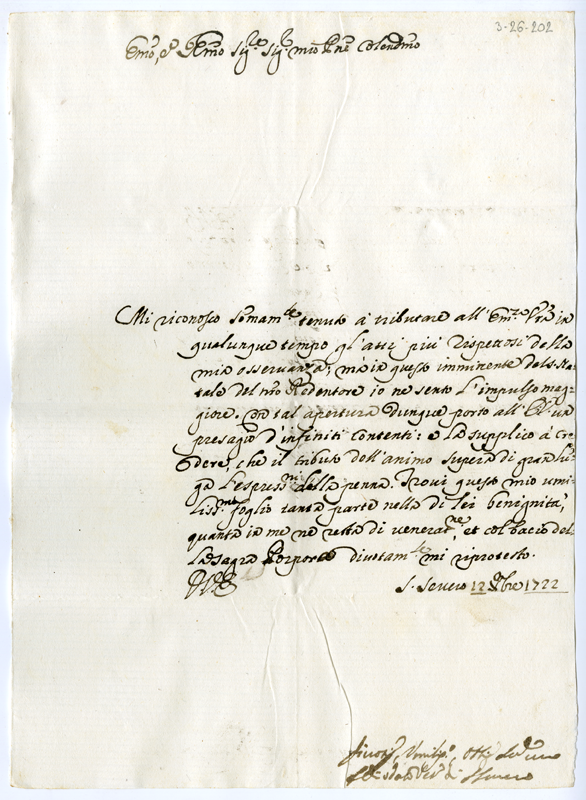 3-26-202
Em̃o, e R̃mo Sig.re Sig.r mio P̃ne Colendmo
Mi riconosco som̃am.te tenuto à tributare all' Em.za Vr̃a in
qualunque tempo gl'atti più rispettosi della
mia osservanza; ma in questo imminente del S. Na-
tale del nr̃o Redentore io ne sento l'impulso mag-
giore. Con tal apertura dunque porto all' E.V. un
presagio d'infiniti contenti: e la supplico à cre-
dere, che il tributo dell'animo supera di gran lun-
ga l'espress.ni della penna. Trovi questo mio umi-
liss.mo foglio tanta parte nella di lei benignità,
quanta in me ne resta di venerat.ne, et col bacio del-
la sagra Porpora divotam.te mi riprotesto.
D.V.E.
S. Severo 12 Xbre 1722
Divotis. Umilis. Obb.
di S. Severo